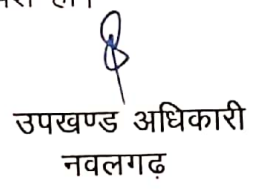 उपखण्ड अधिकारी
नवलगढ़